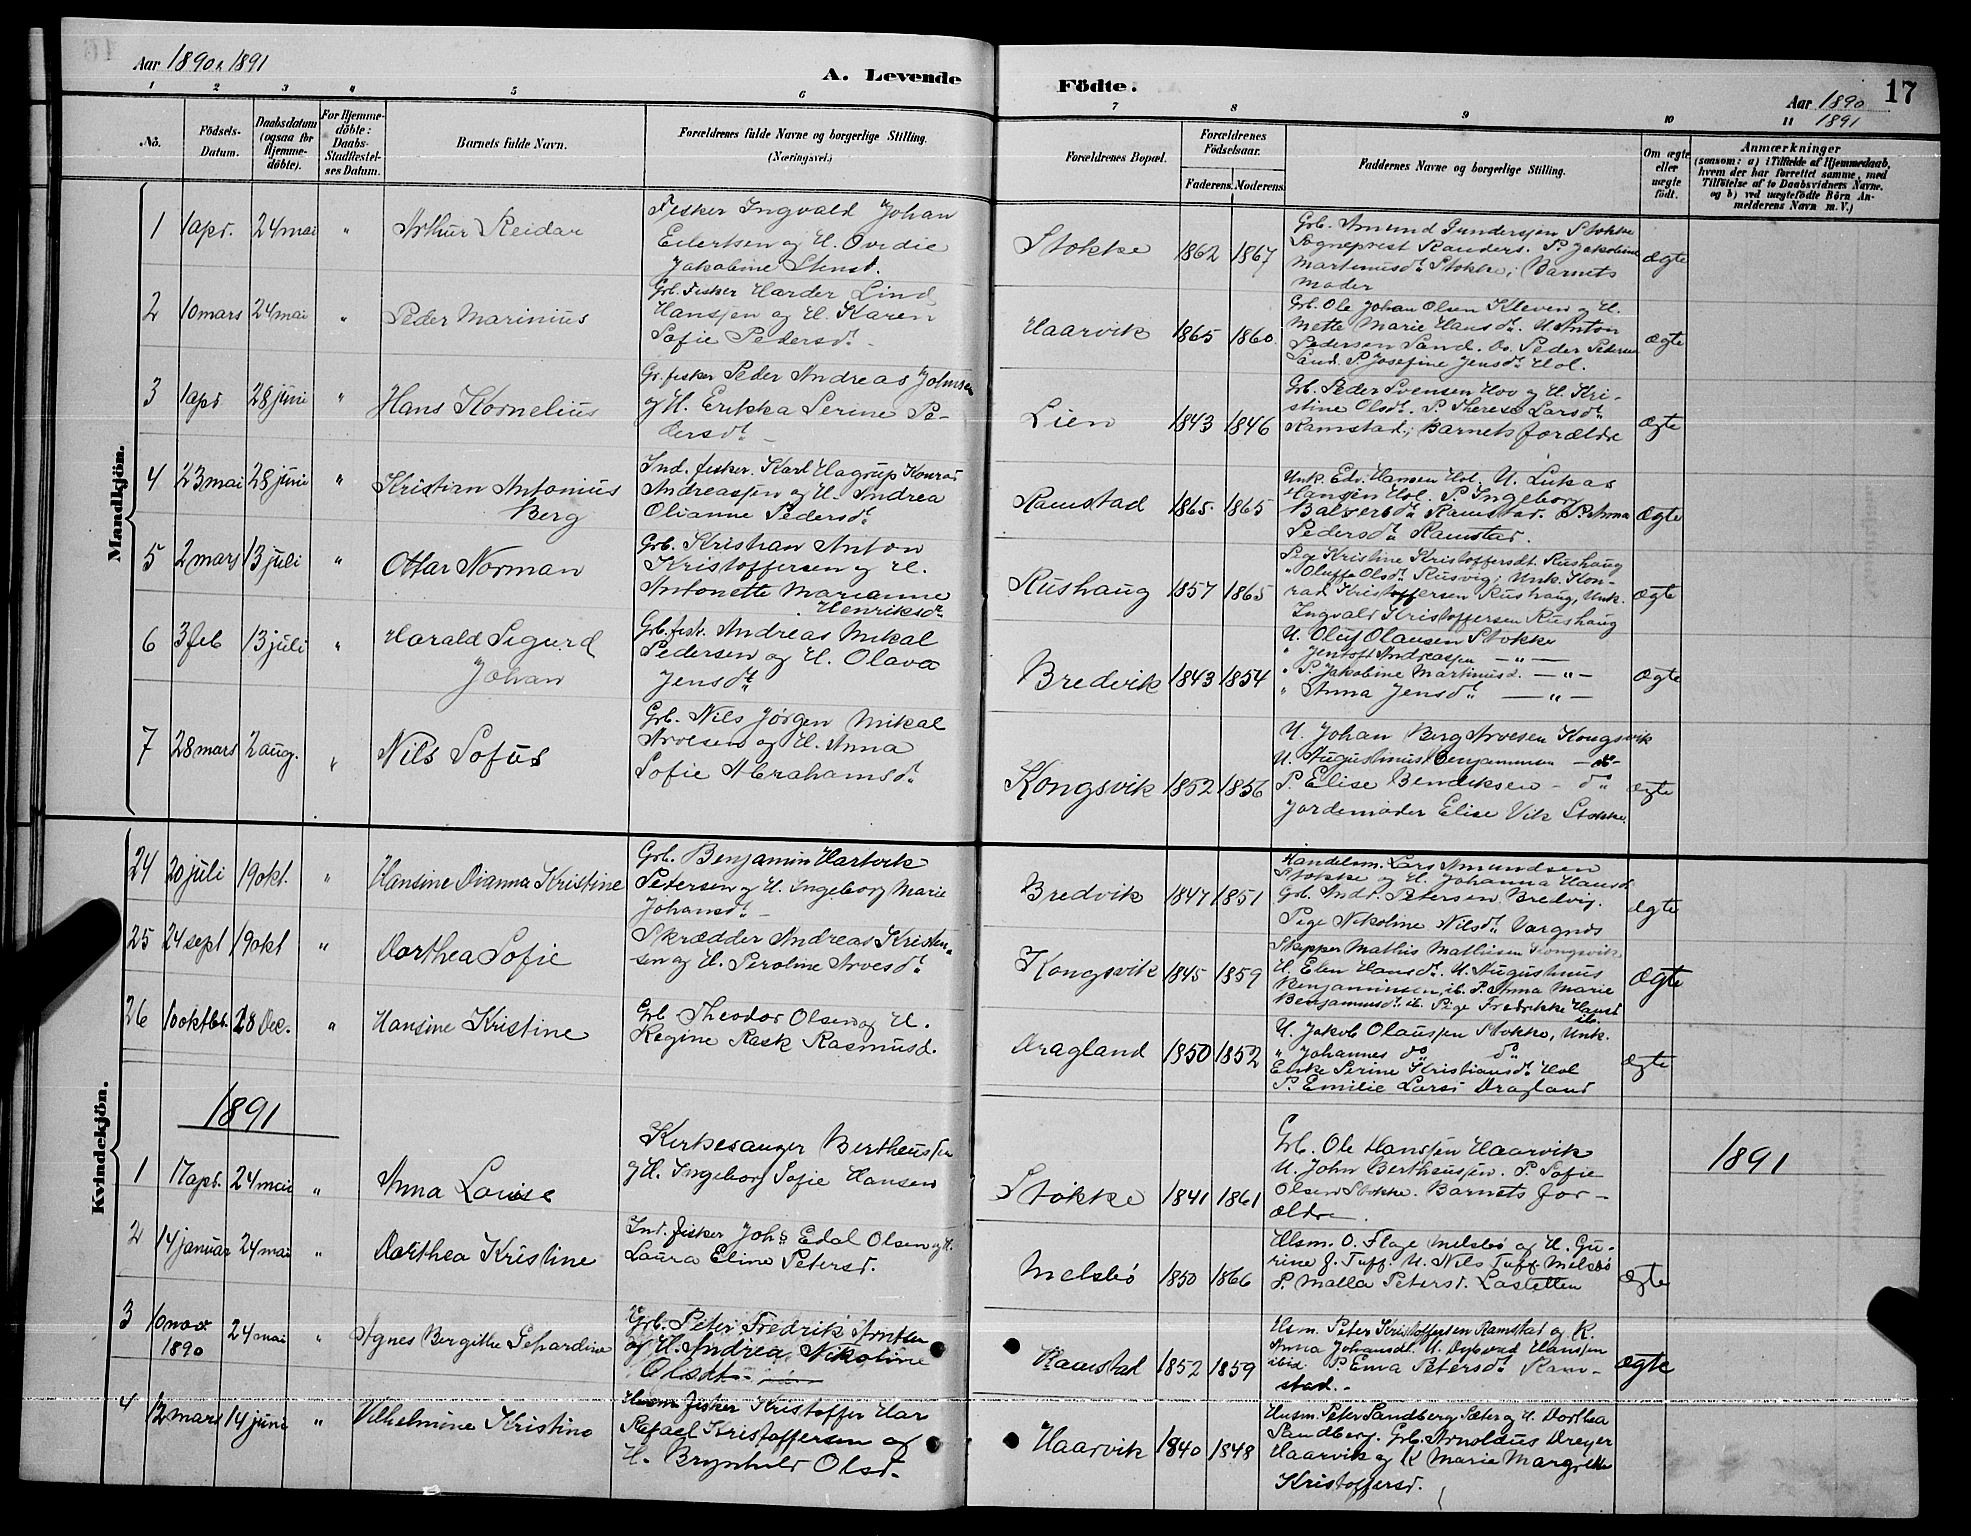 Aar 1890 & 1891
A. Levende
Födte.
Aar 1890
1891
17
1 2 3 4 5 6 7 8 9 10 11
No.
Födsels-Datum.
Daabsdatum (ogsaa för Hjemme-döbte).
For Hjemme-döbte: Daabs-Stadfæstel-ses Datum.
Barnets fulde Navn.
Forældrenes fulde Navne og borgerlige Stilling.
(Næringsvei.)
Forældrenes Bopæl.
Forældrenes Födselsaar.
Faderens. Moderens.
Faddernes Navne og borgerlige Stilling.
Om ægte eller uægte født.
Anmærkninger
(saasom: a) i Tilfælde af Hjemmedaab,
hvem der har forrettet samme, med
Tilföielse af to Daabsvidners Navne,
og b) ved uægtefödte Börn An-
melderens Navn m. V.)
Mandkjön.
1 1 apr. 24 mai " Arthur Reidar
Fisker Ingvald Johan
Eilertsen og H. Ovidie
Jakobine Stensd.
Stokke 1862 1867
Grb. Amund Gundersen Stokke
Sogneprest Randers. P. Jakobine
Martinusd. Stokke, Barnets
Moder
ægte
2 10 mars 24 mai " Peder Marinius
Grb. Fisker Harder Lind
Hanssen og H. Karen
Sofie Pedersd.
Haarvik 1865 1860
Grb. Ole Johan Olsen Kleven og H.
Mette Marie Hansd. U. Anton
Pedersen Sand. Peder Pedersen
Sand. P. Josefine Jensd. Hol.
ægte
3 1 apr 28 juni " Hans Kornelius
Gr. fisker Peder Andreas Johnsen
og H. Erikka Serine Pe-
dersd.
Lien 1843 1846
Grb. Peder Svensen Hov og H. Kri-
stine Olsd. P. Therese Larsd.
Ramstad; Barnets forældre
ægte
4 23 mai 28 juni " Kristian Antonius
Berg
Ind. fisker. Karl Hagrup Konrad
Andreassen og H. Andrea
Olianne Pedersd.
Ramstad 1865. 1865
Unk. Edv. Hansen Hol. U. Lukas
Hansen Hol. P. Ingeborg
Balzersd. Ramstad. P. Anna
Pedersd. Ramstad.
ægte
5 2 mars 13 juli " Ottar Norman
Grb. Kristian Anton
Kristoffersen og H.
Antonette Marianne
Henriksd.
Rushaug 1857 1865
Pige Kristine Kristoffersdt. Rushaug
" Oluffa Olsd. Rusvig; Unk. Kon-
rad Kristoffersen Rushaug, Unk.
Ingvald Kristoffersen Rushaug
ægte
6 3 feb 13 juli " Harald Sigurd
Johan
Grb. fisk. Andreas Mikal
Pedersen og H. Olava
Jensd.
Bredvik 1843 1854
U. Oluf Olausen Stokke
" Jentoft Andreassen — " —
" P. Jakobine Martinusd. — " —
" Anna Jensd. — " —
ægte
7 28 mars 2 aug. " Nils Sofus
Grb. Nils Jörgen Mikal
Arvesen og H. Anna
Sofie Abrahamsd.
Kongsvik 1852 1856
U. Johan Berg Arvesen Kongsvik
U. Augustinus Benjaminsen — do —
P. Elise Bendiksen — do
Jordemoder Elise Vik Stokke.
ægte
Kvindekjön.
24 20 juli 19 okt. " Hansine Dianna Kristine
Grb. Benjamin Hartvik
Petersen og H. Ingeborg Marie
Johansd.
Bredvik 1847 1851
Handelsm. Lars Amundsen
Stokke og H. Johanna Hansd.
Grb. Andr. Petersen Bredvig.
Pige Nikoline Nilsd. Vargnes
ægte
25 24 sept 19 okt " Dorthea Sofie
Skrædder Andreas Kristen-
sen og H. Peroline Arvesd.
Kongsvik 1845 1859
Skipper Mathis Mathisen Kongsvik
H. Elen Hansd. U. Augustinus
Benjaminsen, ib. P. Anna Marie
Benjaminsd. ib. Pige Fredrikke Hansd
ib.
ægte
26 10 oktbr. 28 Dec. " Hansine Kristine
Grb Theodor Olsen og H.
Regine Rask Rasmusd.
Dragland 1850 1852
U. Jakob Olaussen Stokke, Unk.
" Johannes do do
Enke Serine Kristiansd. Hol
P. Emilie Larsd Dragland
ægte
1891
1891
1 17 apr. 24 mai " Anna Louise
Kirkesanger Bertheussen
og H. Ingeborg Sofie Hansen
Stokke 1841 1861
Grb. Ole Hanssen Haarvik
U. John Bertheussen. P. Sofie
Olsen Stokke. Barnets for-
ældre
2 14 januar 24 mai " Dorthea Kristine
Ind. fisker Johs Edal Olsen og H.
Laura Eline Petersd.
Melsbö 1850 1866
Husm. O. Flage Melsbö og H. Gu-
rine J. Tuff. U. Nils Tuff Melsbö
P. Malla Petersd. Lastetten
ægte
3 10 nov 1890 24 mai " Agnes Bergithe Gehardine
Grb. Peter Fredrik Arntsen
og H. Andrea Nikoline
Olsdt.
Ramstad 1852 1859
Husm. Peter Kristoffersen Ramstad og K.
Anna Johansdt. U. Dybvad Hanssen
ibid P. Ema Petersd. Ram-
stad.
ægte
4 12 mars 14 juni " Vilhelmine Kristine
Husm fisker Kristoffer Har
Rafael Kristoffersen og
H. Brynhild Olsd.
Haarvik 1840 1848
Husm. Peter Sandberg Sæter og H. Dorthea
Sandberg. Grb. Arnoldus Dreyer
Haarvik og K Marie Margrete
Kristoffersd.